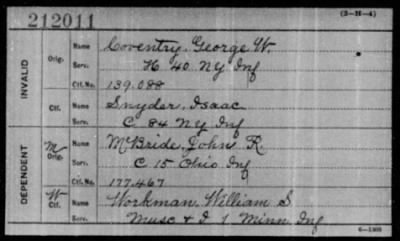 212011
(3-M-4)
INVALID
Orig. Name Coventry, George W.
Serv. H 40 NY Inf
Ctf. No. 139.088
Ctf. Name Snyder, Isaac
Serv. C 84 NY Inf
DEPENDENT
M Orig. Name McBride, John R.
Serv. C 15 Ohio Inf
Ctf. No. 177.467
W Ctf. Name Workman, William S
Serv. Musc & I 1 Minn Inf